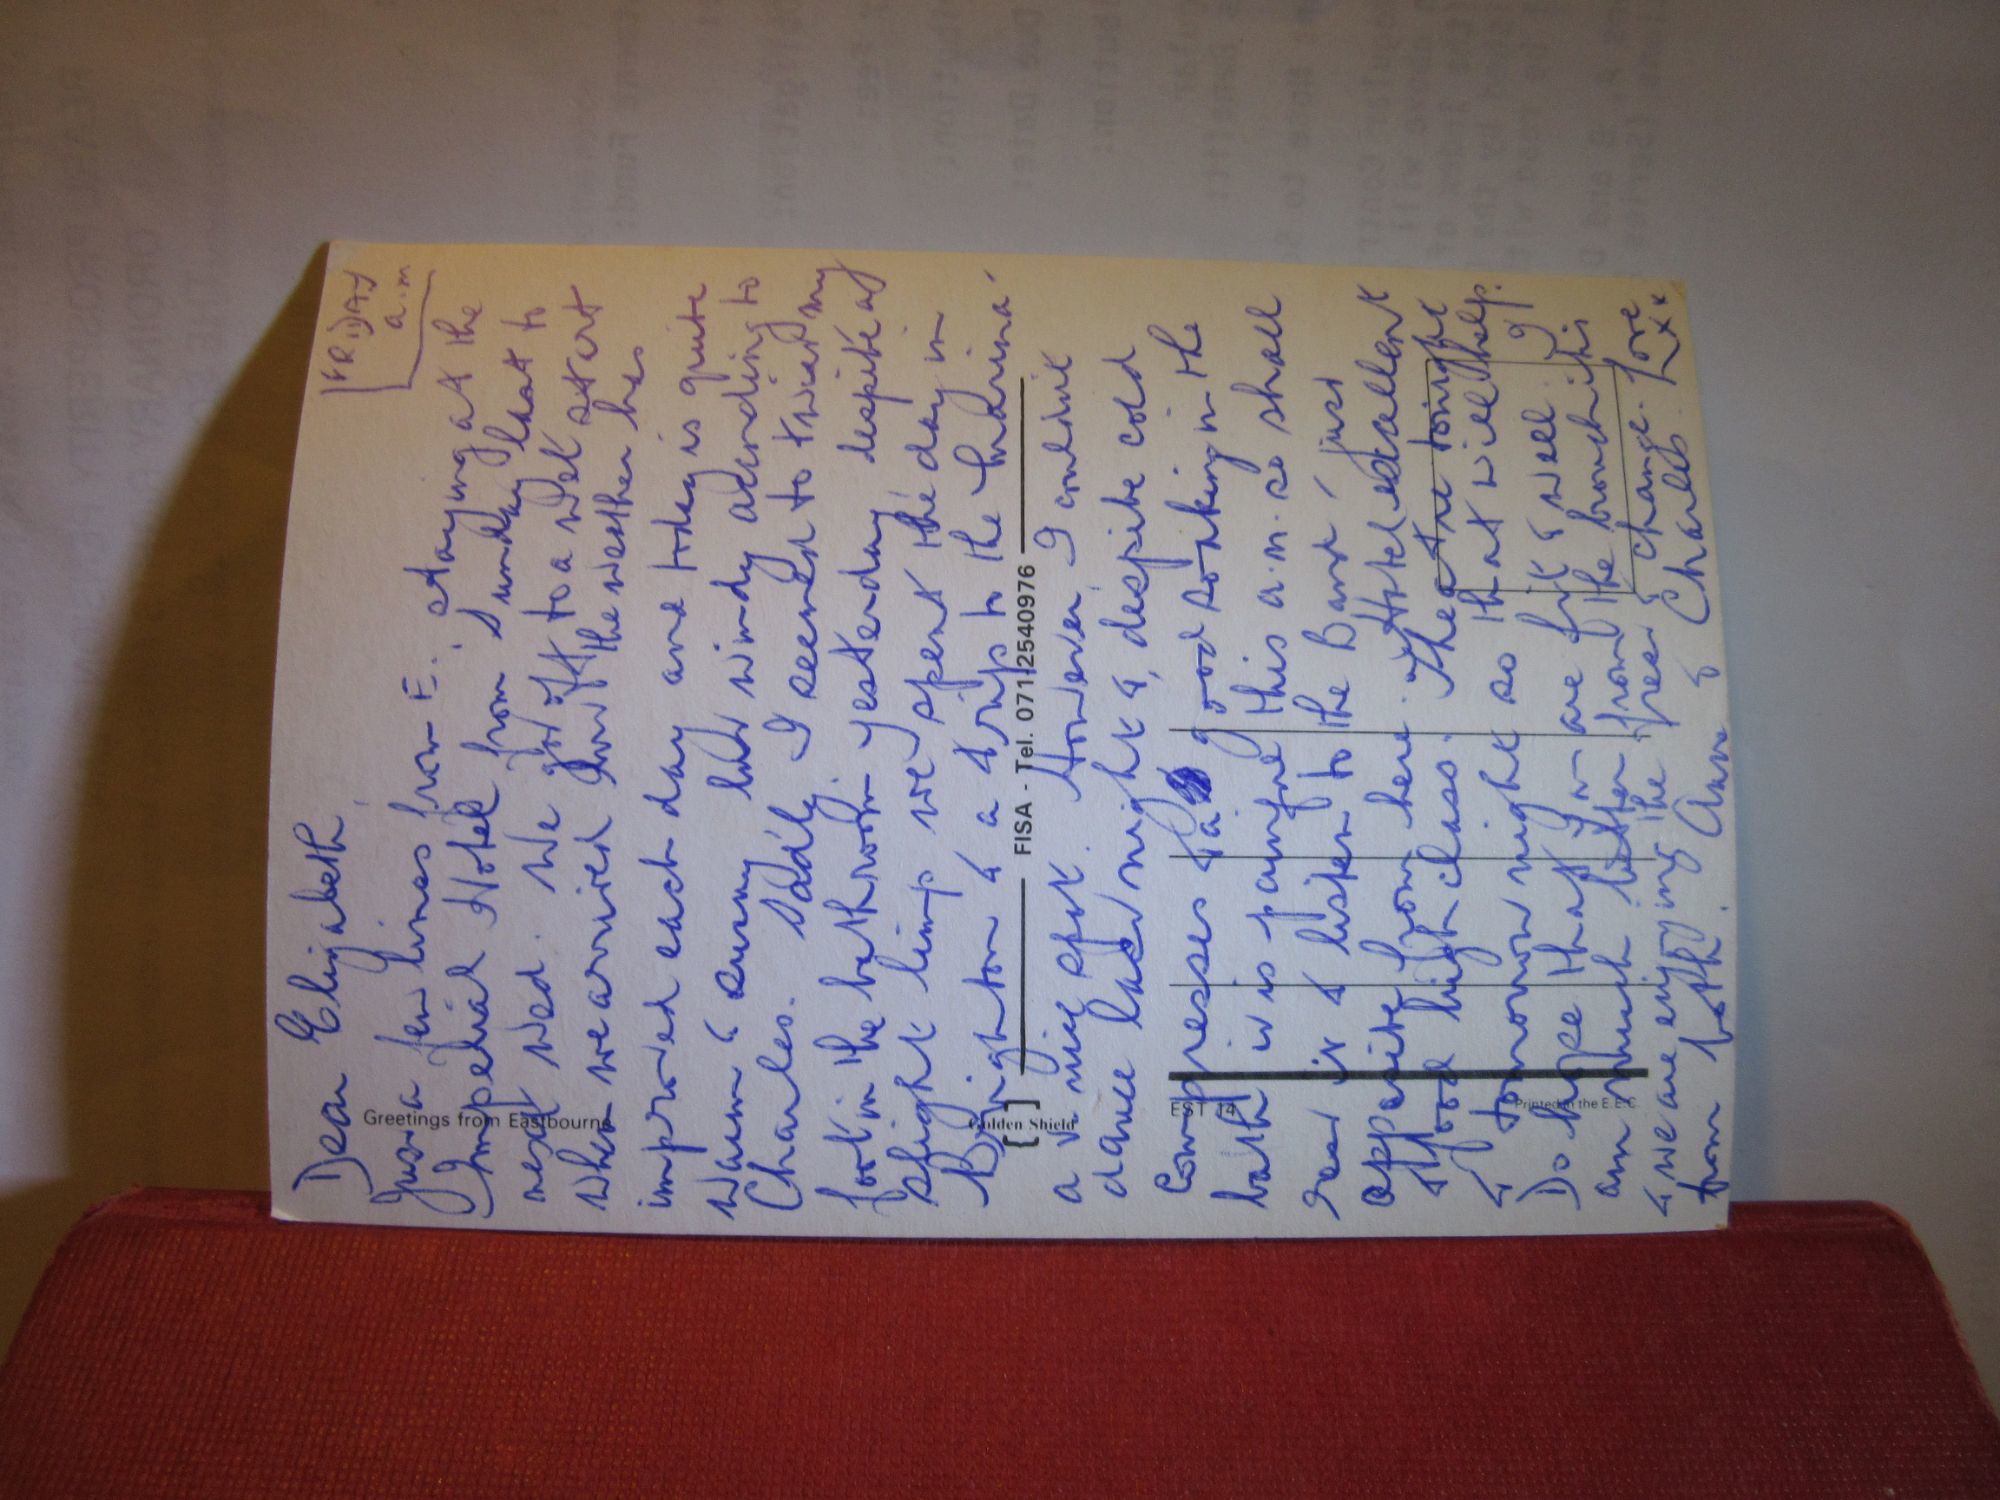 FRIDAY
a.m
Dear Elizabeth,
Just a few lines from E. staying at the
Imperial Hotel from Sunday last to
next Wed. We got off to a wet start
when we arrived but the weather has
improved each day and today is quite
warm & sunny but windy according to
Charles. Sadly I seemed to twist my
foot in the bathroom yesterday despite a
slight limp we spent the day in
Brighton & a trip to the Marina -
a v nice spot. However, I couldn't
dance last night &, despite cold
compresses & a good soaking in the
bath it is painful this a.m. so shall
rest it & listen to the Band, just
opposite from here. Hotel excellent
& food high class. Theatre tonight
& tomorrow night so that will help.
Do hope that you are fit & well. I
am much better from the bronchitis
& we are enjoying the free change. Love
from both. Anne & Charles xxx
Greetings from Eastbourne
Golden Shield
FISA - Tel. 071 2540976
EST 14
Printed in the E.E.C.